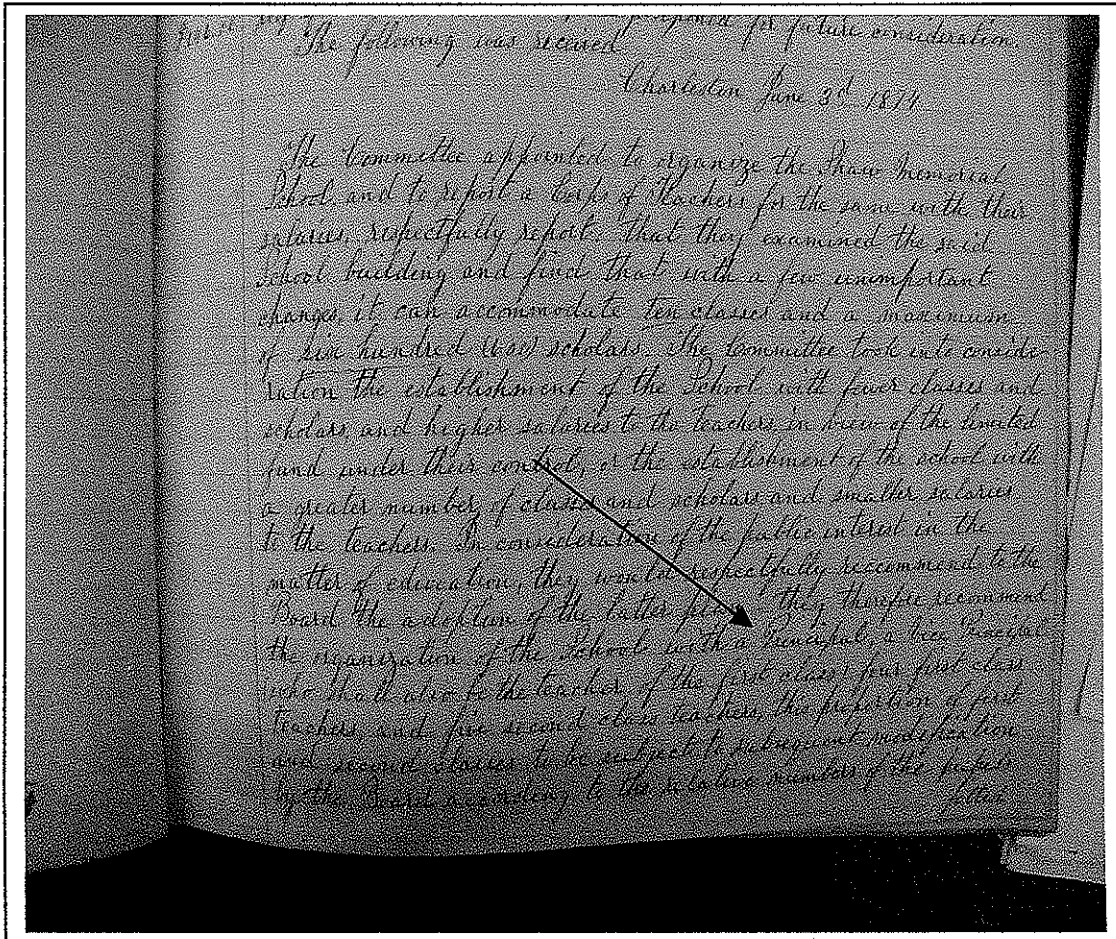 postponed for future consideration.
The following was received
Charleston June 3d 1874
The Committee appointed to organize the Shaw Memorial
School and to report a Corps of teachers for the same with their
salaries, respectfully report, that they examined the said
school building and find that with a few unimportant
changes, it can accommodate ten classes and a maximum
of hundred scholars. The Committee took into conside-
ration the establishment of the School with fewer classes and
scholars, and higher salaries to the teachers in view of the limited
fund under their control, or the establishment of the school with
a greater number of classes and scholars and smaller salaries
to the teachers. In consideration of the public interest in the
matter of education, they would respectfully recommend to the
Board the adoption of the latter they therefore recommend
the organization of the School with a Principal, a Vice Principal
who shall also be the teacher of the first class, four first class
teachers and five second class teachers, the proportion of first
and second classes to be subject to subsequent modification
by the Board according to the relative numbers of the pupils